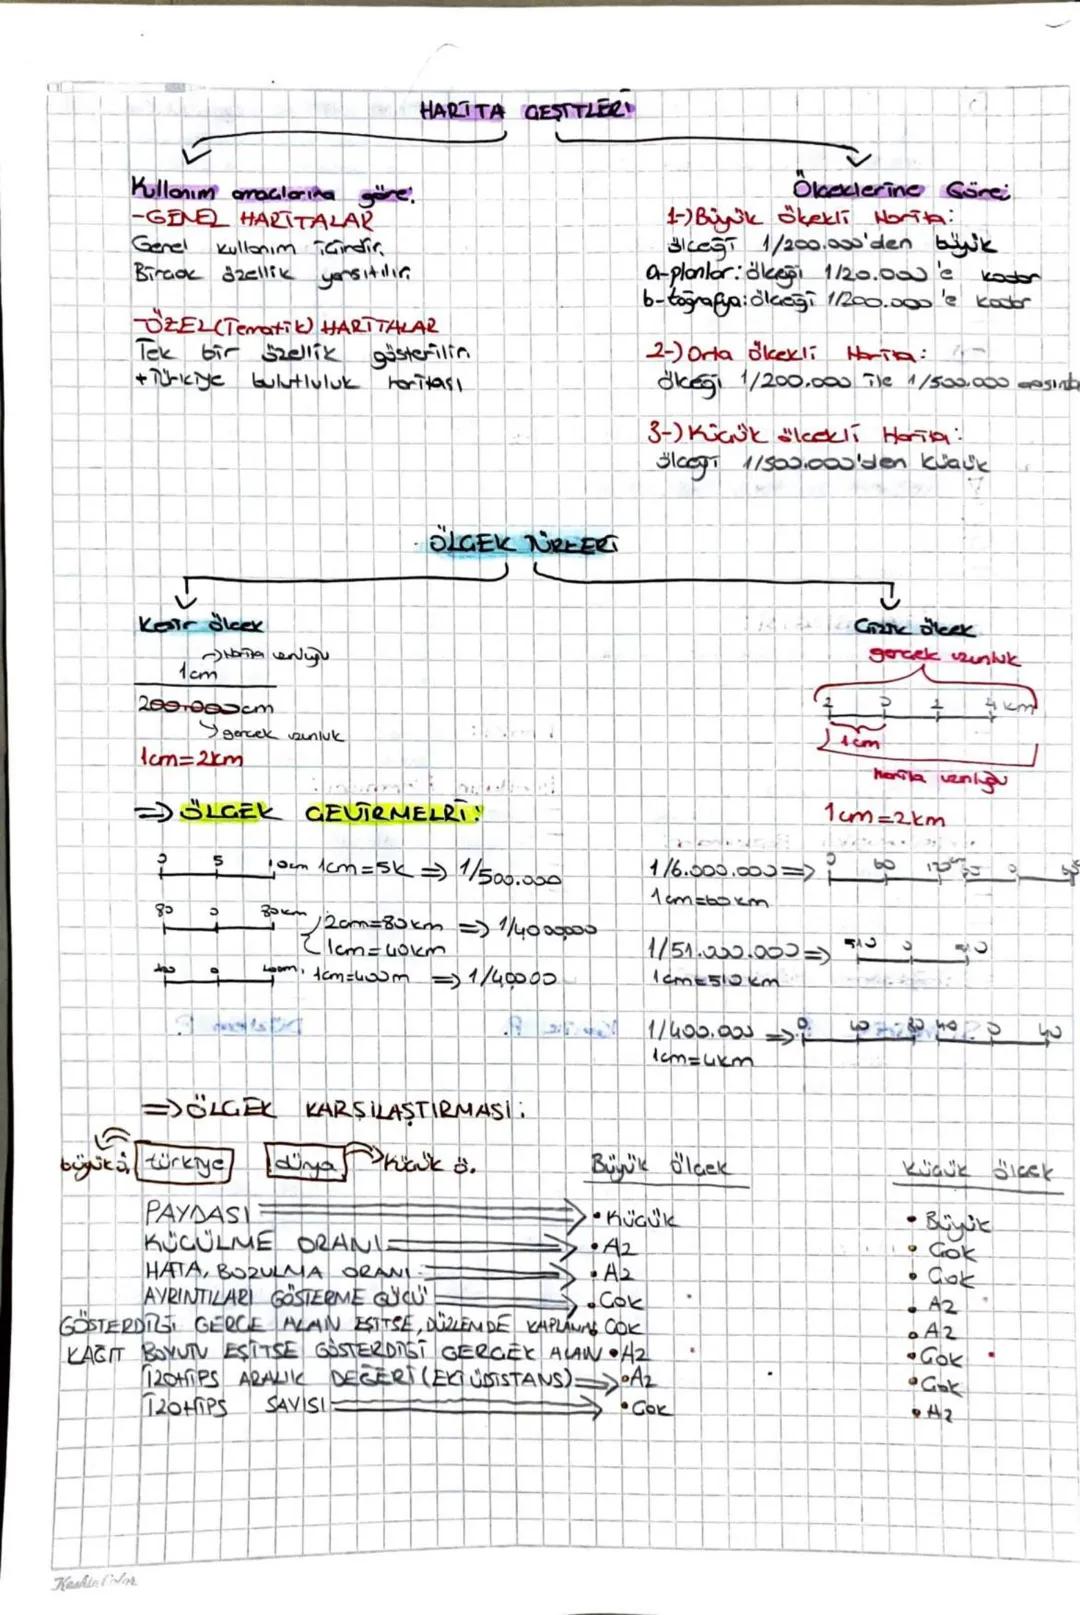 HARİTA ÇEŞİTLERİ
Kullanım amaçlarına göre:
-GENEL HARİTALAR
Genel kullanım içindir.
Birçok özellik yansıtılır.
-ÖZEL(Tematik) HARİTALAR
Tek bir özellik gösterilir.
+Türkiye bulutluluk haritası
Ölçeklerine Göre:
1-)Büyük ölçekli Harita:
ölçeği 1/200.000'den büyük
a-planlar: ölçeği 1/20.000'e kadar
b-toğrafya: ölçeği 1/200.000'e kadar
2-)Orta ölçekli Harita:
ölçeği 1/200.000 ile 1/500.000 arasında
3-)Küçük ölçekli Harita:
ölçeği 1/500.000'den küçük
ÖLÇEK TÜRLERİ
Kesir ölçek
harita uzunluğu
1cm
200.000cm
gerçek uzunluk
1cm=2km
Çizik ölçek
gerçek uzunluk
2 0 2 4 km
1cm
harita uzunluğu
1cm=2km
=> ÖLÇEK ÇEVİRMELRİ:
0 5 10cm 1cm=5k => 1/500.000
80 0 80km 2cm=80km => 1/4000000
1cm=40km
400 0 400m. 1cm=400m => 1/40000
1/6.000.000=> 0 60 120km 60 0
1cm=60km
1/51.000.000=> 510 0 510
1cm=510km
1/400.000 => 0 40 80 40 0 40
1cm=4km
=>ÖLÇEK KARŞİLAŞTIRMASİ:
büyük ö. türkiye dünya Küçük ö.
Büyük ölçek Küçük ölçek
PAYDASI •Küçük •Büyük
KÜÇÜLME ORANI •Az •Çok
HATA, BOZULMA ORANI •Az •Çok
AYRINTILARI GÖSTERME GÜCÜ •Çok •Az
GÖSTERDİĞİ GERÇE ALAN EŞİTSE, DÜZLEMDE KAPLANAN ÇOK •Az
KAĞIT BOYUTU EŞİTSE GÖSTERDİĞİ GERÇEK ALAN •Az •Çok
İZOHİPS ARALIK DEĞERİ(EKİÜDİSTANS) •Az •Çok
İZOHİPS SAVISI •Çok •Az